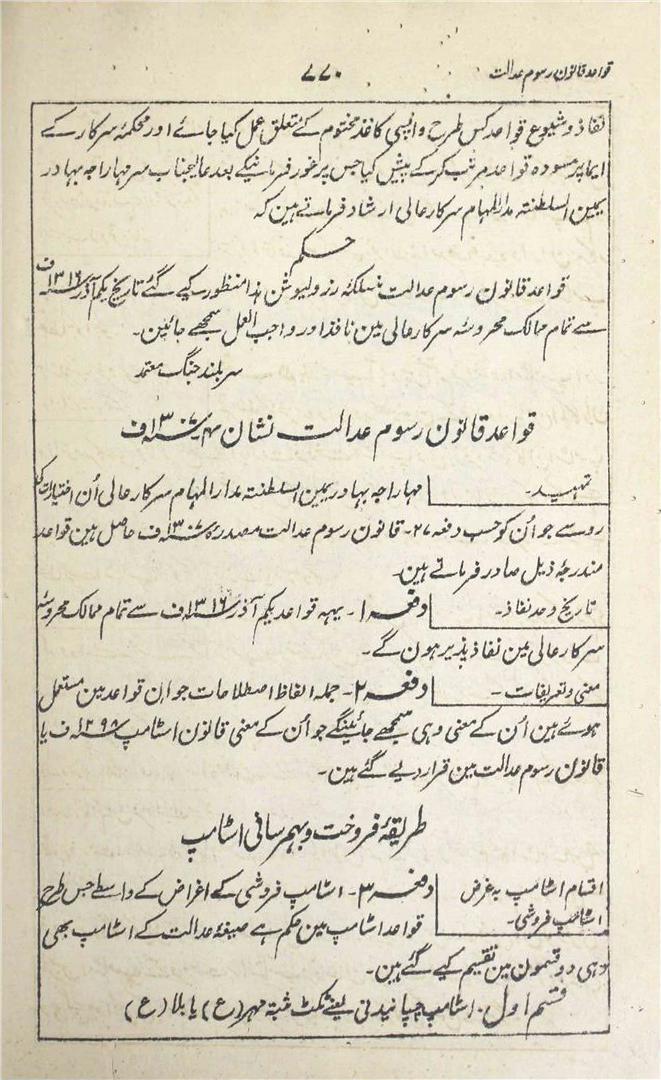 قواعد قانون رسوم عدالت
۷۷۰
نفاذ و شیوع قواعد کس طرح واپسی کاغذ مختوم کے متعلق عمل کیا جائے اور محکمۂ سرکار کے
ایما پر مسودہ قواعد مرتب کرکے پیش کیا جس پر غور فرمانیکے بعد عالیجناب سر مہاراجہ بہادر
یمین السلطنتہ مدارالمہام سرکار عالی ارشاد فرماتے ہین کہ
حکم
قواعد قانون رسوم عدالت منسلکۂ رزولیوشن ہذا منظور کیے گئے تاریخ یکم آذر ۱۳۱۶ ف
سے تمام ممالک محروسۂ سرکار عالی مین نافذ اور واجب العمل سمجھے جائین۔
سر بلند جنگ معتمد
قواعد قانون رسوم عدالت نشان ۴ ۱۳۰۷ ف
تمہید۔
مہاراجہ بہادر یمین السلطنتہ مدارالمہام سرکار عالی اُن اختیارات کی
روسے جو اُن کو حسب دفعہ ۲۷۔ قانون رسوم عدالت مصدرہ ۱۳۰۷ ف حاصل ہین قواعد
مندرجۂ ذیل صادر فرماتے ہین۔
تاریخ و حد نفاذ۔
دفعہ ۱۔ یہہ قواعد یکم آذر ۱۳۱۶ ف سے تمام ممالک محروسۂ
سرکار عالی مین نفاذ پذیر ہون گے۔
معنی و تعریفات۔
دفعہ ۲۔ جملہ الفاظ اصطلاحات جو اِن قواعد مین مستعمل
ہوئے ہین اُن کے معنی وہی سمجھے جائینگے جو اُن کے معنی قانون اسٹامپ ۱۲۹۸ ف یا
قانون رسوم عدالت مین قرار دیے گئے ہین۔
طریقۂ فروخت و بہم رسانی اسٹامپ
اقسام اسٹامپ بہ غرض
اسٹامپ فروشی۔
دفعہ ۳۔ اسٹامپ فروشی کے اغراض کے واسطے جس طرح
قواعد اسٹامپ مین حکم ہے صیغۂ عدالت کے اسٹامپ بھی
وہی دو قسمون مین تقسیم کیے گئے ہین۔
قسم اول۔ اسٹامپ چپانیدنی یعنے ٹکٹ ثبتہ مہر (ع) یا بلا (ع)